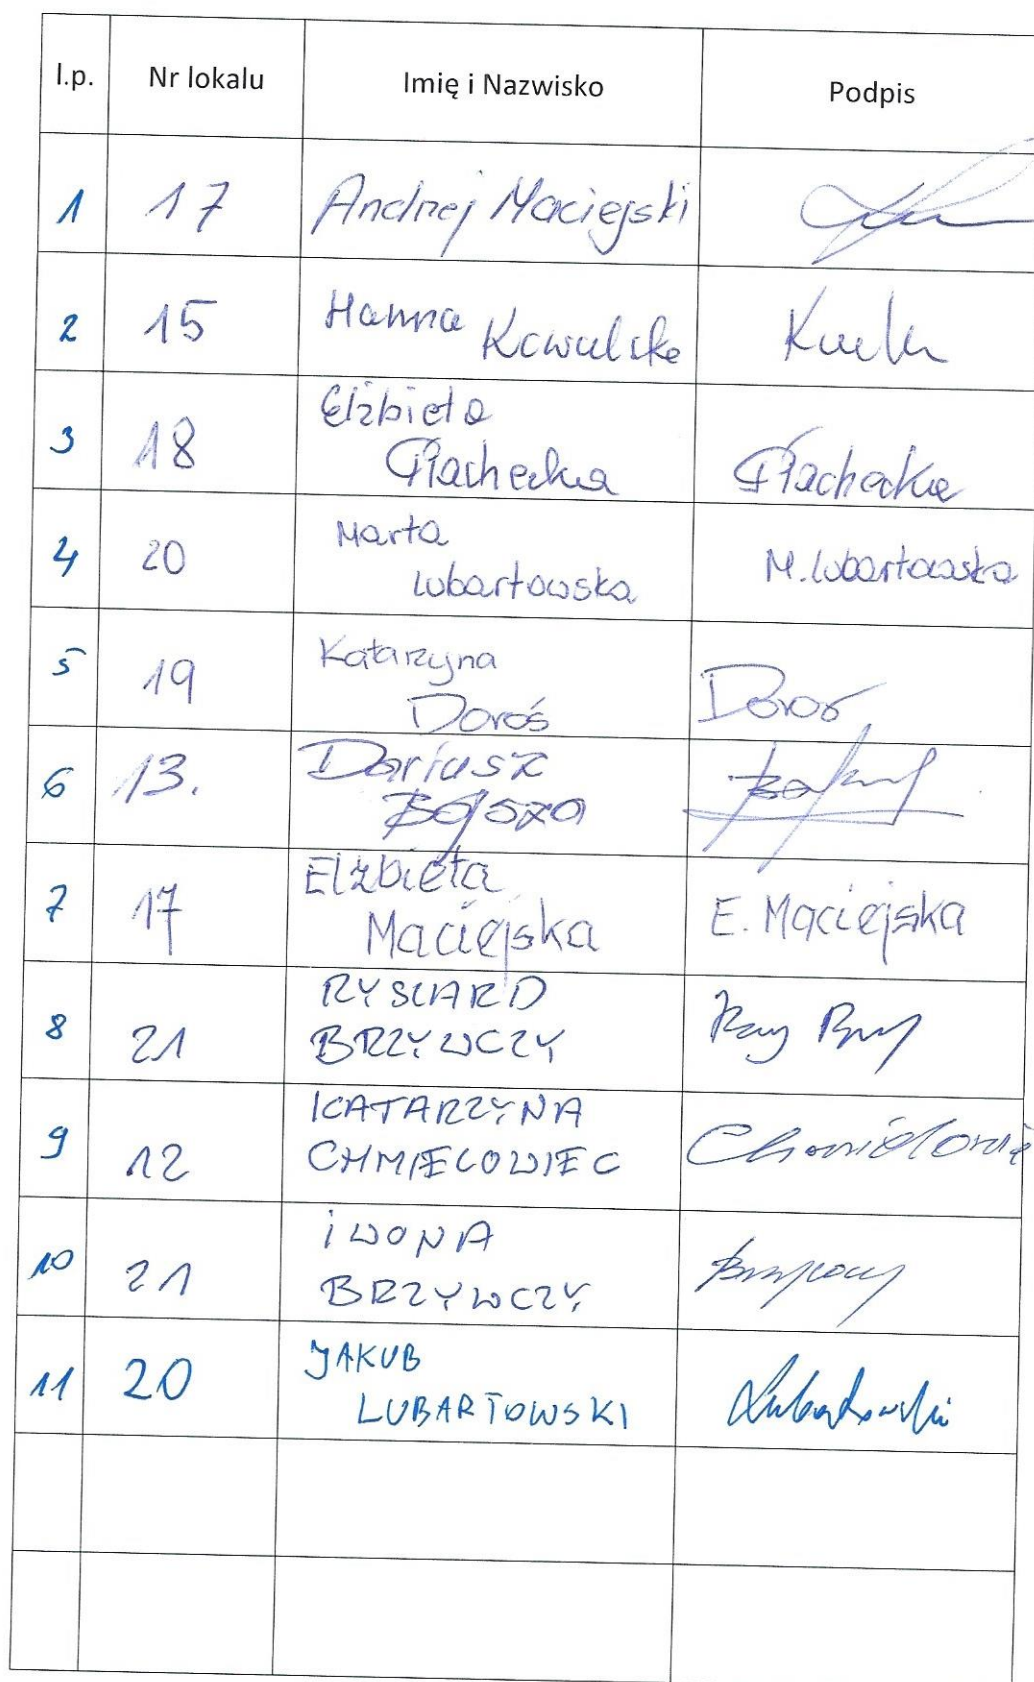 l.p. Nr lokalu Imię i Nazwisko Podpis
1 17 Andrzej Maciejski
2 15 Hanna Kowalska
3 18 Elżbieta
Płachecka Płachecka
4 20 Marta
Lubartowska M. Lubartowska
5 19 Katarzyna
Doroś Doroś
6 13. Dariusz
Bojsza
7 17 Elżbieta
Maciejska E. Maciejska
8 21 RYSZARD
BRZYWCZY
9 12 KATARZYNA
CHMIELOWIEC
10 21 IWONA
BRZYWCZY
11 20 JAKUB
LUBARTOWSKI Lubartowski